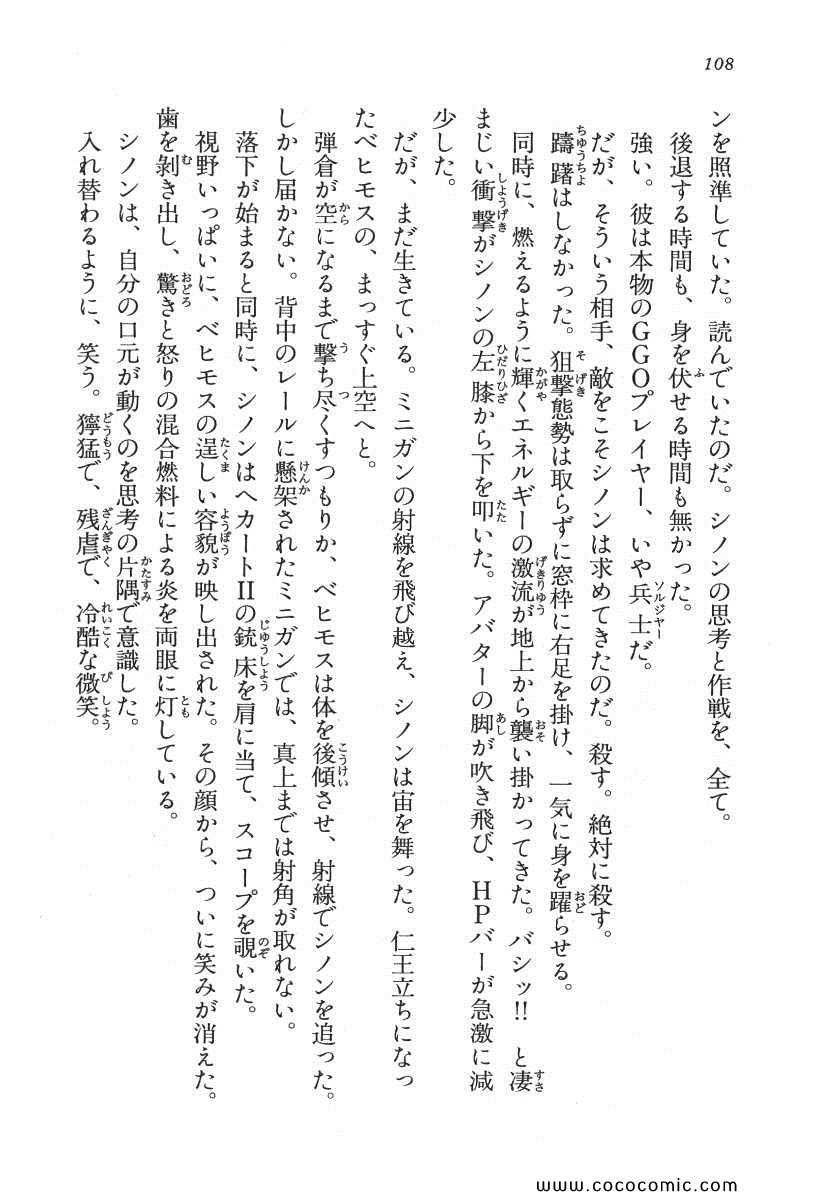 108
ンを照準していた。読んでいたのだ。シノンの思考と作戦を、全て。
後退する時間も、身を伏せる時間も無かった。
強い。彼は本物のGGOプレイヤー、いや兵士だ。
だが、そういう相手、敵をこそシノンは求めてきたのだ。殺す。絶対に殺す。
躊躇はしなかった。狙撃態勢は取らずに窓枠に右足を掛け、一気に身を躍らせる。
同時に、燃えるように輝くエネルギーの激流が地上から襲い掛かってきた。バシッ!! と凄
まじい衝撃がシノンの左膝から下を叩いた。アバターの脚が吹き飛び、HPバーが急激に減
少した。
だが、まだ生きている。ミニガンの射線を飛び越え、シノンは宙を舞った。仁王立ちになっ
たベヒモスの、まっすぐ上空へと。
弾倉が空になるまで撃ち尽くすつもりか、ベヒモスは体を後傾させ、射線でシノンを追った。
しかし届かない。背中のレールに懸架されたミニガンでは、真上までは射角が取れない。
落下が始まると同時に、シノンはヘカートIIの銃床を肩に当て、スコープを覗いた。
視野いっぱいに、ベヒモスの逞しい容貌が映し出された。その顔から、ついに笑みが消えた。
歯を剥き出し、驚きと怒りの混合燃料による炎を両眼に灯している。
シノンは、自分の口元が動くのを思考の片隅で意識した。
入れ替わるように、笑う。獰猛で、残虐で、冷酷な微笑。
www.cococomic.com